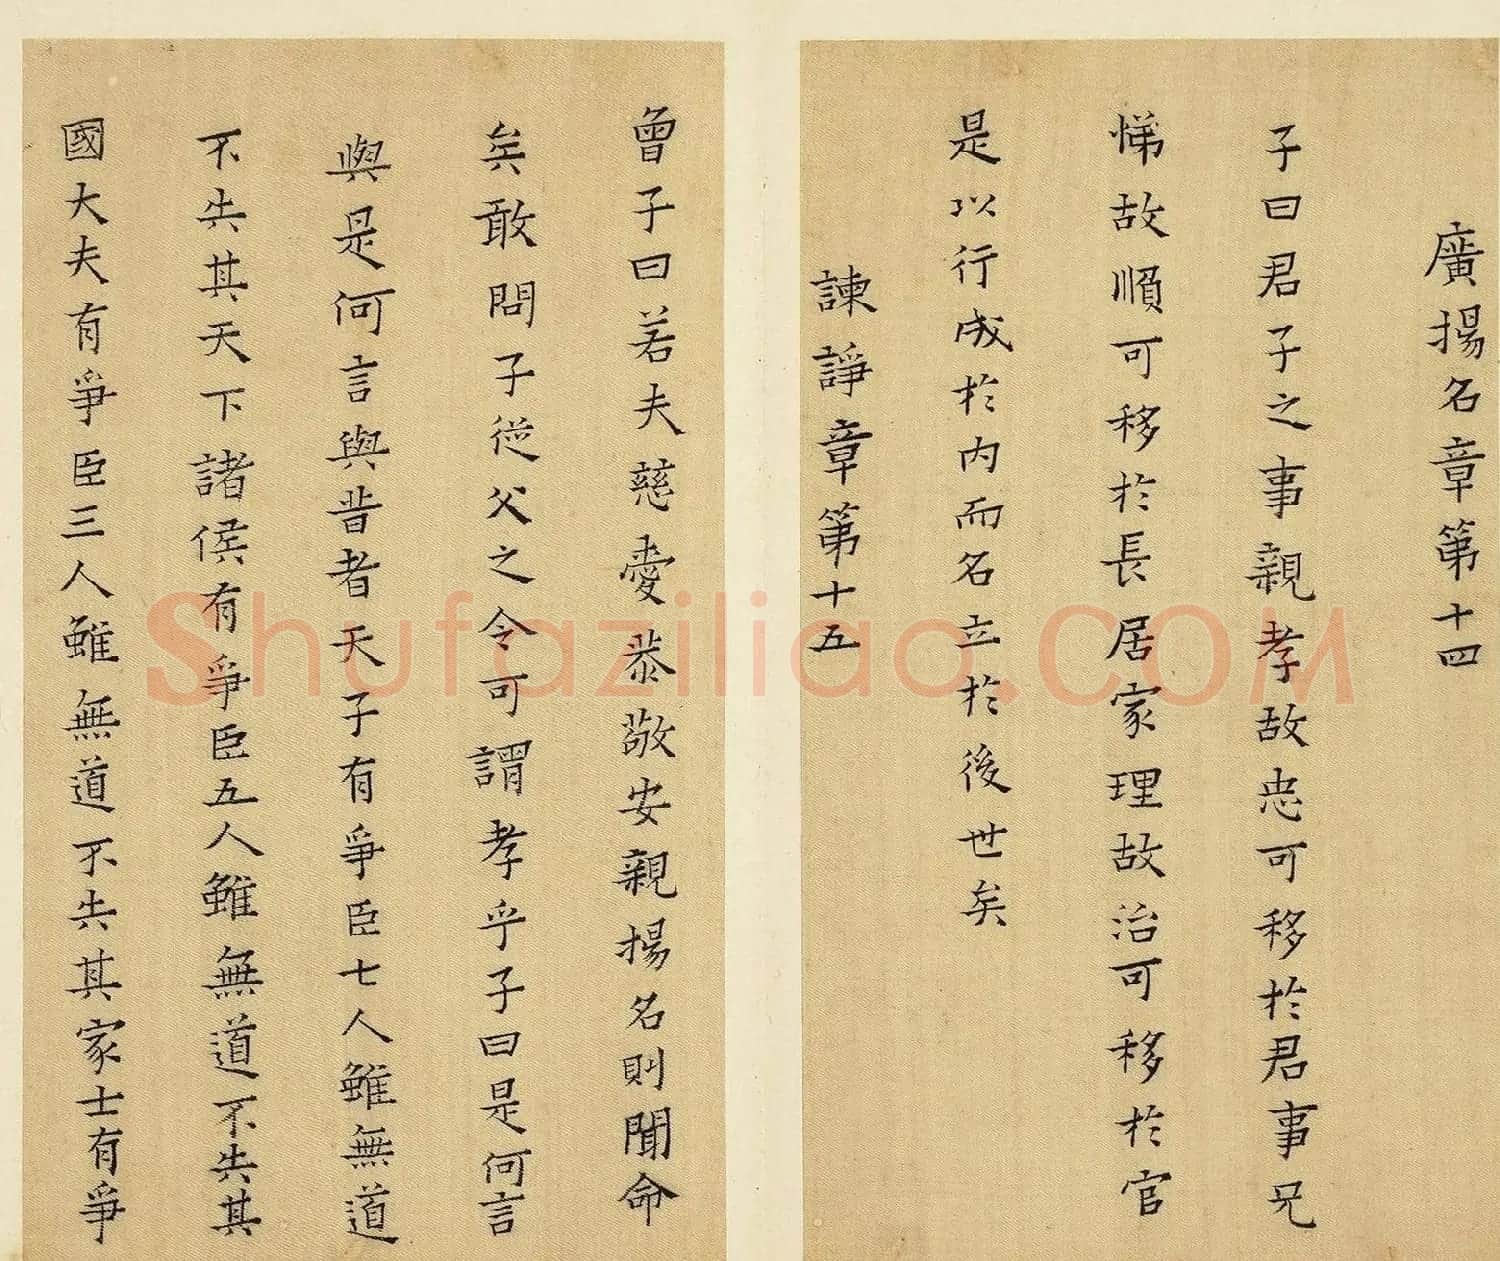 廣揚名章第十四
子曰君子之事親孝故忠可移於君事兄
悌故順可移於長居家理故治可移於官
是以行成於内而名立於後世矣
諫諍章第十五
曾子曰若夫慈愛恭敬安親揚名則聞命
矣敢問子從父之令可謂孝乎子曰是何言
與是何言與昔者天子有爭臣七人雖無道
不失其天下諸侯有爭臣五人雖無道不失其
國大夫有爭臣三人雖無道不失其家士有爭
Shufaziliao.COM